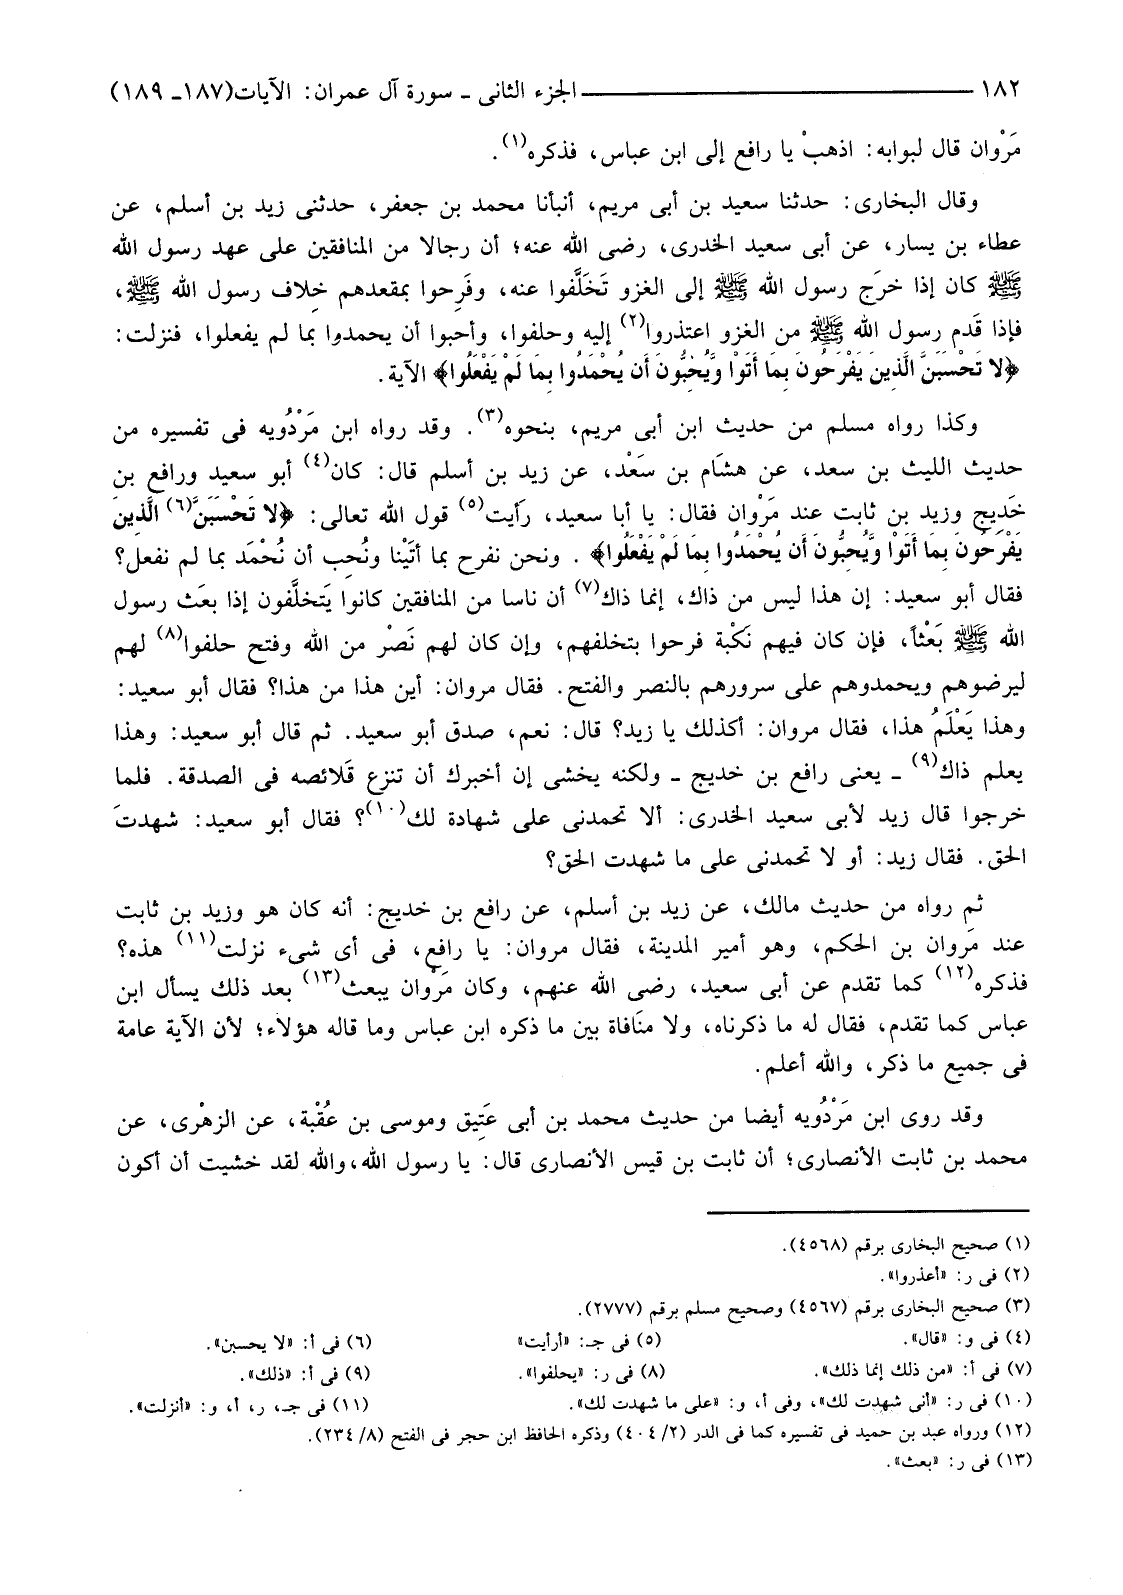 ١٨٢ ــــــــــــــــــــ الجزء الثانى ـ سورة آل عمران: الآيات(١٨٧ـ ١٨٩)
مَرْوان قال لبوابه: اذهبْ يا رافع إلى ابن عباس، فذكره(١).
وقال البخارى: حدثنا سعيد بن أبى مريم، أنبأنا محمد بن جعفر، حدثنى زيد بن أسلم، عن
عطاء بن يسار، عن أبى سعيد الخدرى، رضى الله عنه؛ أن رجالا من المنافقين على عهد رسول الله
ﷺ كان إذا خرَج رسول الله ﷺ إلى الغزو تَخَلَّفوا عنه، وفَرِحوا بمقعدهم خِلاف رسول الله ﷺ،
فإذا قَدم رسول الله ﷺ من الغزو اعتذروا(٢) إليه وحلفوا، وأحبوا أن يحمدوا بما لم يفعلوا، فنزلت:
﴿لا تَحْسَبَنَّ الَّذِينَ يَفْرَحُونَ بِمَا أَتَوْا وَّيُحِبُّونَ أَن يُحْمَدُوا بِمَا لَمْ يَفْعَلُوا﴾ الآية.
وكذا رواه مسلم من حديث ابن أبى مريم، بنحوه(٣). وقد رواه ابن مَرْدُويه فى تفسيره من
حديث الليث بن سعد، عن هشَام بن سَعْد، عن زيد بن أسلم قال: كان(٤) أبو سعيد ورافع بن
خَدِيج وزيد بن ثابت عند مَرْوان فقال: يا أبا سعيد، رَأيت(٥) قول الله تعالى: ﴿لا تَحْسَبَنَّ(٦) الَّذِينَ
يَفْرَحُونَ بِمَا أَتَوْا وَّيُحِبُّونَ أَن يُحْمَدُوا بِمَا لَمْ يَفْعَلُوا﴾ . ونحن نفرح بما أتَيْنا ونُحِب أن نُحْمَد بما لم نفعل؟
فقال أبو سعيد: إن هذا ليس من ذاك، إنما ذاك(٧) أن ناسا من المنافقين كانوا يَتخلَّفون إذا بعَث رسول
الله ﷺ بَعْثاً، فإن كان فيهم نَكْبة فرحوا بتخلفهم، وإن كان لهم نَصْر من الله وفتح حلفوا(٨) لهم
ليرضوهم ويحمدوهم على سرورهم بالنصر والفتح. فقال مروان: أين هذا من هذا؟ فقال أبو سعيد:
وهذا يَعْلَمُ هذا، فقال مروان: أكذلك يا زيد؟ قال: نعم، صدق أبو سعيد. ثم قال أبو سعيد: وهذا
يعلم ذاك(٩) ـ يعنى رافع بن خديج ـ ولكنه يخشى إن أخبرك أن تنزع قَلائصه فى الصدقة. فلما
خرجوا قال زيد لأبى سعيد الخدرى: ألا تحمدنى على شهادة لك(١٠)؟ فقال أبو سعيد: شهدتَ
الحق. فقال زيد: أو لا تحمدنى على ما شهدت الحق؟
ثم رواه من حديث مالك، عن زيد بن أسلم، عن رافع بن خديج: أنه كان هو وزيد بن ثابت
عند مَروان بن الحكم، وهو أمير المدينة، فقال مروان: يا رافع، فى أى شىء نزلت(١١) هذه؟
فذكره(١٢) كما تقدم عن أبى سعيد، رضى الله عنهم، وكان مَرْوان يبعث(١٣) بعد ذلك يسأل ابن
عباس كما تقدم، فقال له ما ذكرناه، ولا منَافاة بين ما ذكره ابن عباس وما قاله هؤلاء؛ لأن الآية عامة
فى جميع ما ذكر، والله أعلم.
وقد روى ابن مَرْدُويه أيضا من حديث محمد بن أبى عَتِيق وموسى بن عُقْبة، عن الزهْرى، عن
محمد بن ثابت الأنصارى؛ أن ثابت بن قيس الأنصارى قال: يا رسول الله،والله لقد خشيت أن أكون
(١) صحيح البخارى برقم (٤٥٦٨).
(٢) فى ر: «أعذروا».
(٣) صحيح البخارى برقم (٤٥٦٧) وصحيح مسلم برقم (٢٧٧٧).
(٤) فى و: «قال». (٥) فى جـ: «أرأيت» (٦) فى أ: «لا يحسبن».
(٧) فى أ: «من ذلك إنما ذلك». (٨) فى ر: «يحلفوا». (٩) فى أ: «ذلك».
(١٠) فى ر: «أنى شهدت لك»، وفى أ، و: «على ما شهدت لك». (١١) فى جـ، ر، أ، و: «أنزلت».
(١٢) ورواه عبد بن حميد فى تفسيره كما فى الدر (٢/ ٤٠٤) وذكره الحافظ ابن حجر فى الفتح (٨/ ٢٣٤).
(١٣) فى ر: «بعث».